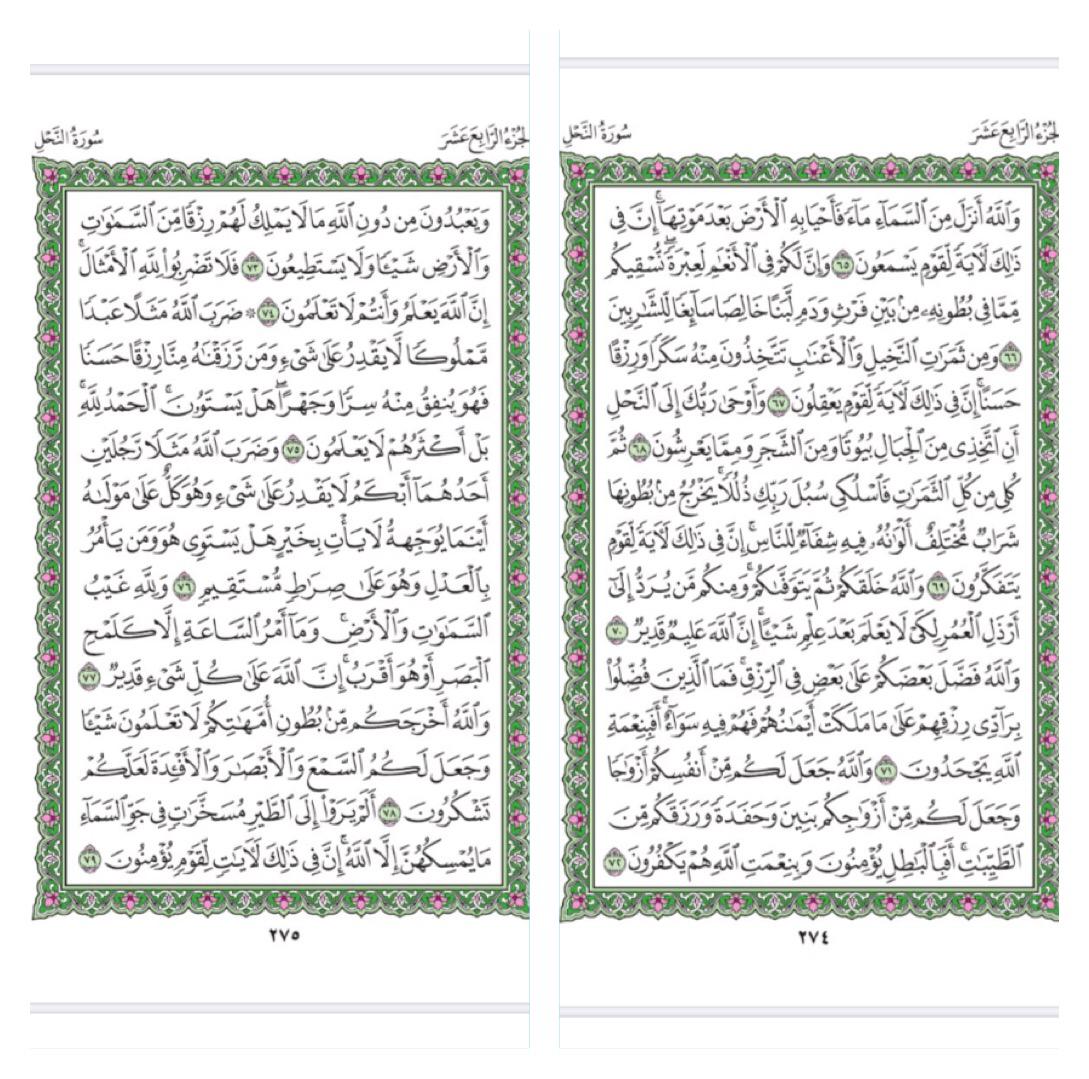 الجزء الرابع عشر
سورة النحل
وَاللَّهُ أَنزَلَ مِنَ السَّمَاءِ مَاءً فَأَحْيَا بِهِ الْأَرْضَ بَعْدَ مَوْتِهَا ۚ إِنَّ فِي
ذَٰلِكَ لَآيَةً لِّقَوْمٍ يَسْمَعُونَ ٦٥ وَإِنَّ لَكُمْ فِي الْأَنْعَامِ لَعِبْرَةً ۖ نُّسْقِيكُم
مِّمَّا فِي بُطُونِهِ مِن بَيْنِ فَرْثٍ وَدَمٍ لَّبَنًا خَالِصًا سَائِغًا لِّلشَّارِبِينَ
٦٦ وَمِن ثَمَرَاتِ النَّخِيلِ وَالْأَعْنَابِ تَتَّخِذُونَ مِنْهُ سَكَرًا وَرِزْقًا
حَسَنًا ۗ إِنَّ فِي ذَٰلِكَ لَآيَةً لِّقَوْمٍ يَعْقِلُونَ ٦٧ وَأَوْحَىٰ رَبُّكَ إِلَى النَّحْلِ
أَنِ اتَّخِذِي مِنَ الْجِبَالِ بُيُوتًا وَمِنَ الشَّجَرِ وَمِمَّا يَعْرِشُونَ ٦٨ ثُمَّ
كُلِي مِن كُلِّ الثَّمَرَاتِ فَاسْلُكِي سُبُلَ رَبِّكِ ذُلُلًا ۚ يَخْرُجُ مِن بُطُونِهَا
شَرَابٌ مُّخْتَلِفٌ أَلْوَانُهُ فِيهِ شِفَاءٌ لِّلنَّاسِ ۗ إِنَّ فِي ذَٰلِكَ لَآيَةً لِّقَوْمٍ
يَتَفَكَّرُونَ ٦٩ وَاللَّهُ خَلَقَكُمْ ثُمَّ يَتَوَفَّاكُمْ ۚ وَمِنكُم مَّن يُرَدُّ إِلَىٰ
أَرْذَلِ الْعُمُرِ لِكَيْ لَا يَعْلَمَ بَعْدَ عِلْمٍ شَيْئًا ۚ إِنَّ اللَّهَ عَلِيمٌ قَدِيرٌ ٧٠
وَاللَّهُ فَضَّلَ بَعْضَكُمْ عَلَىٰ بَعْضٍ فِي الرِّزْقِ ۚ فَمَا الَّذِينَ فُضِّلُوا
بِرَادِّي رِزْقِهِمْ عَلَىٰ مَا مَلَكَتْ أَيْمَانُهُمْ فَهُمْ فِيهِ سَوَاءٌ ۚ أَفَبِنِعْمَةِ
اللَّهِ يَجْحَدُونَ ٧١ وَاللَّهُ جَعَلَ لَكُم مِّنْ أَنفُسِكُمْ أَزْوَاجًا
وَجَعَلَ لَكُم مِّنْ أَزْوَاجِكُم بَنِينَ وَحَفَدَةً وَرَزَقَكُم مِّنَ
الطَّيِّبَاتِ ۚ أَفَبِالْبَاطِلِ يُؤْمِنُونَ وَبِنِعْمَتِ اللَّهِ هُمْ يَكْفُرُونَ ٧٢
٢٧٤
الجزء الرابع عشر
سورة النحل
وَيَعْبُدُونَ مِن دُونِ اللَّهِ مَا لَا يَمْلِكُ لَهُمْ رِزْقًا مِّنَ السَّمَاوَاتِ
وَالْأَرْضِ شَيْئًا وَلَا يَسْتَطِيعُونَ ٧٣ فَلَا تَضْرِبُوا لِلَّهِ الْأَمْثَالَ ۚ
إِنَّ اللَّهَ يَعْلَمُ وَأَنتُمْ لَا تَعْلَمُونَ ٧٤ ۞ ضَرَبَ اللَّهُ مَثَلًا عَبْدًا
مَّمْلُوكًا لَّا يَقْدِرُ عَلَىٰ شَيْءٍ وَمَن رَّزَقْنَاهُ مِنَّا رِزْقًا حَسَنًا
فَهُوَ يُنفِقُ مِنْهُ سِرًّا وَجَهْرًا ۖ هَلْ يَسْتَوُونَ ۚ الْحَمْدُ لِلَّهِ ۚ
بَلْ أَكْثَرُهُمْ لَا يَعْلَمُونَ ٧٥ وَضَرَبَ اللَّهُ مَثَلًا رَّجُلَيْنِ
أَحَدُهُمَا أَبْكَمُ لَا يَقْدِرُ عَلَىٰ شَيْءٍ وَهُوَ كَلٌّ عَلَىٰ مَوْلَاهُ
أَيْنَمَا يُوَجِّههُّ لَا يَأْتِ بِخَيْرٍ ۖ هَلْ يَسْتَوِي هُوَ وَمَن يَأْمُرُ
بِالْعَدْلِ ۙ وَهُوَ عَلَىٰ صِرَاطٍ مُّسْتَقِيمٍ ٧٦ وَلِلَّهِ غَيْبُ
السَّمَاوَاتِ وَالْأَرْضِ ۚ وَمَا أَمْرُ السَّاعَةِ إِلَّا كَلَمْحِ
الْبَصَرِ أَوْ هُوَ أَقْرَبُ ۚ إِنَّ اللَّهَ عَلَىٰ كُلِّ شَيْءٍ قَدِيرٌ ٧٧
وَاللَّهُ أَخْرَجَكُم مِّن بُطُونِ أُمَّهَاتِكُمْ لَا تَعْلَمُونَ شَيْئًا
وَجَعَلَ لَكُمُ السَّمْعَ وَالْأَبْصَارَ وَالْأَفْئِدَةَ ۙ لَعَلَّكُمْ
تَشْكُرُونَ ٧٨ أَلَمْ يَرَوْا إِلَى الطَّيْرِ مُسَخَّرَاتٍ فِي جَوِّ السَّمَاءِ
مَا يُمْسِكُهُنَّ إِلَّا اللَّهُ ۗ إِنَّ فِي ذَٰلِكَ لَآيَاتٍ لِّقَوْمٍ يُؤْمِنُونَ ٧٩
٢٧٥